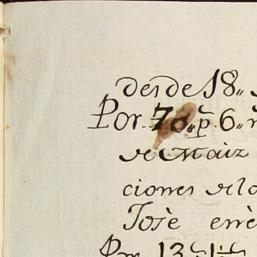 desde 18,,
Por 70,, p.s 6,,
de Maiz
ciones de lo
Josè
Por 13